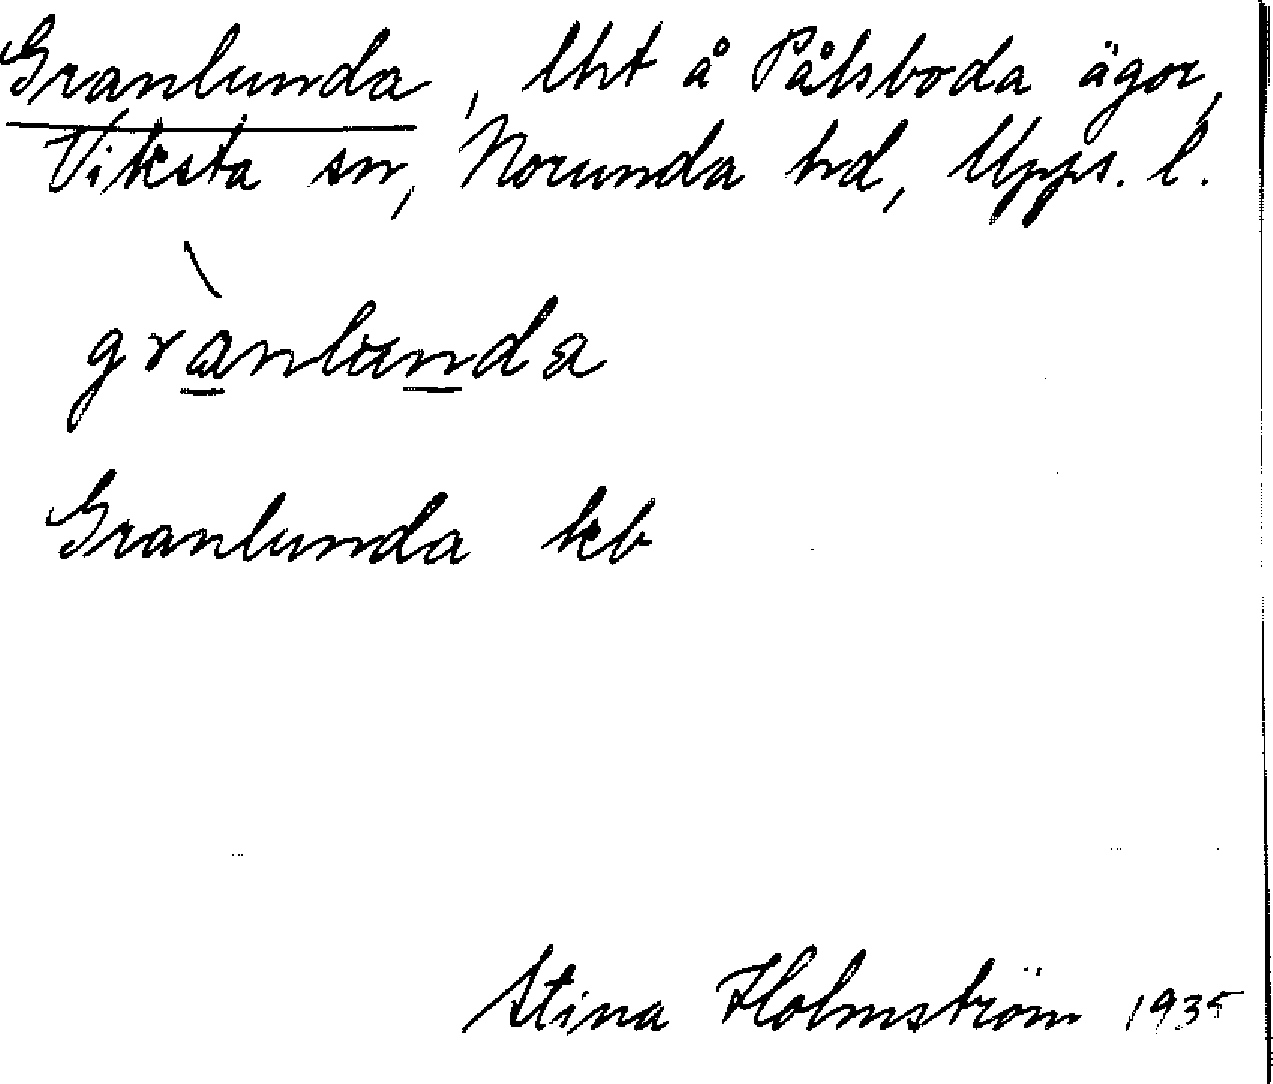 Granlunda, lht å Pålsboda ägor,
Viksta sn, Norunda hd, Upps. l.
grànlunda
Granlunda kb
Stina Holmström 1935